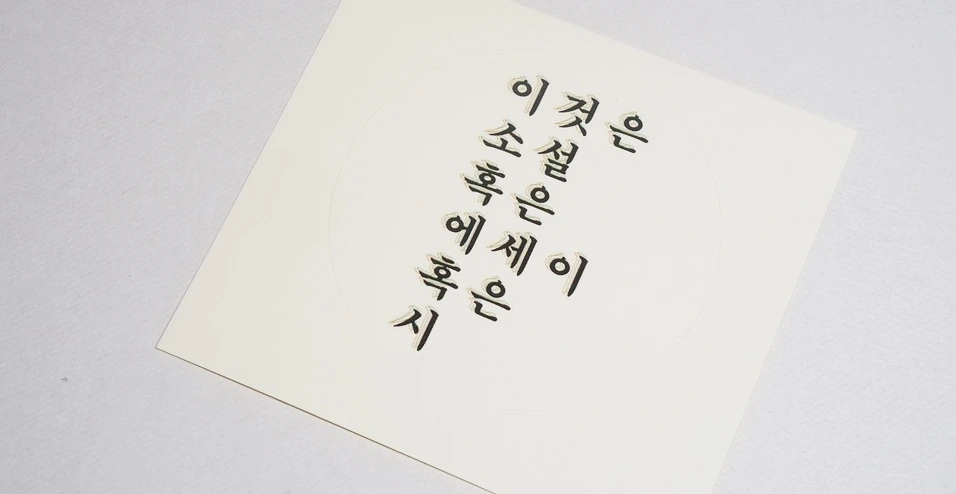 이것은
소설
혹은
에세이
혹은
시